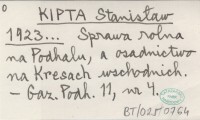 0
KIPTA Stanisław
1923... Sprawa rolna
na Podhalu, a osadnictwo
na Kresach wschodnich.
— Gaz. Podh. 11, nr 4.
BT/025/0764